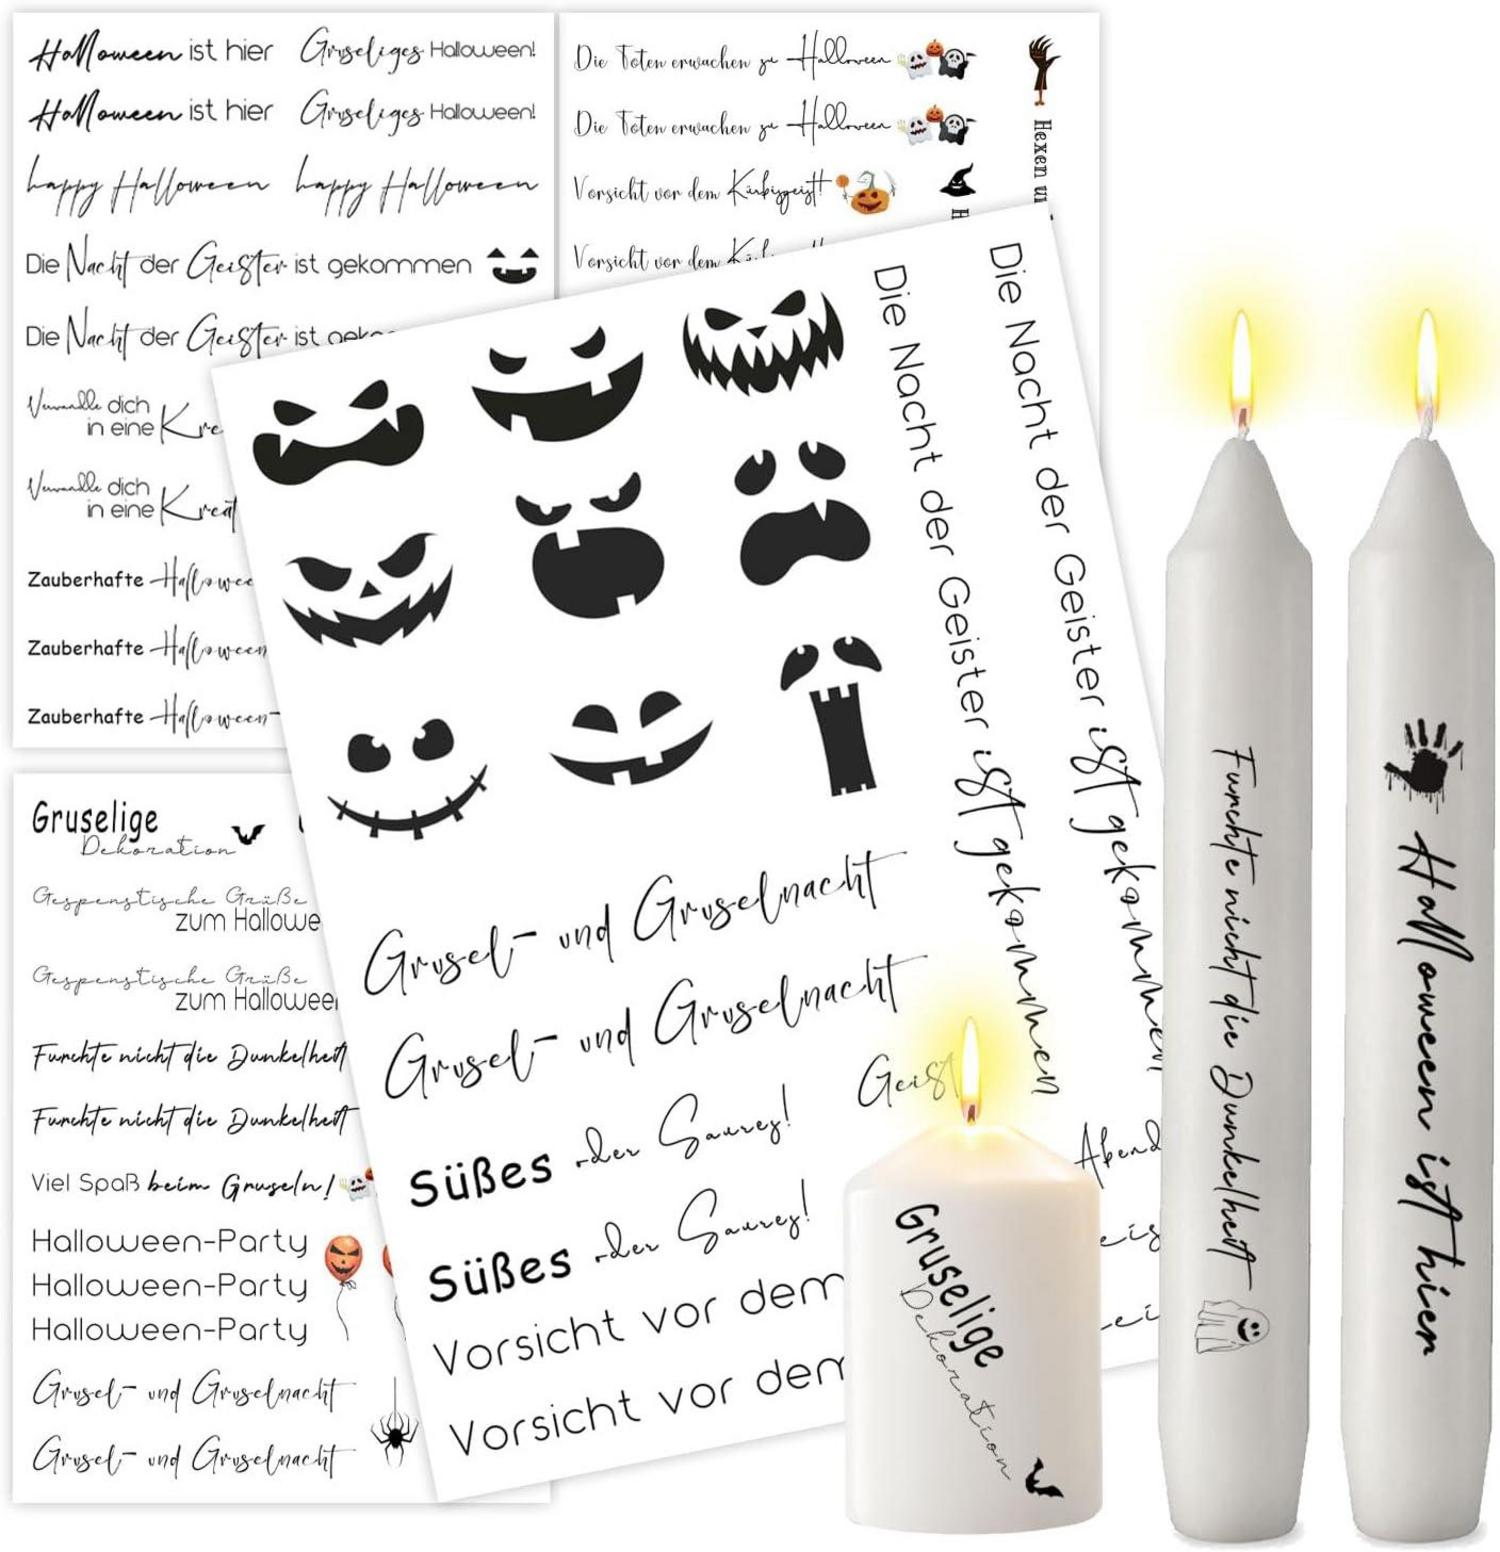 Halloween ist hier
Gruseliges Halloween!
Halloween ist hier
Gruseliges Halloween!
happy Halloween
happy Halloween
Die Nacht der Geister ist gekommen
Die Nacht der Geister ist
Verwandle dich
in eine
Verwandle dich
in eine
Zauberhafte
Zauberhafte Halloween
Zauberhafte Halloween
Die Toten erwachen zu Halloween
Die Toten erwachen zu Halloween
Vorsicht vor dem Kürbisgeist!
Vorsicht vor dem
Hexen
Die Nacht der Geister ist gekommen
Die Nacht der Geister ist gekommen
Grusel- und Gruselnacht
Grusel- und Gruselnacht
Süßes oder Saures!
Süßes oder Saures!
Vorsicht vor dem
Vorsicht vor dem
Geist
Abend
Gruselige
Dekoration
Gespenstische Grüße
zum
Gespenstische Grüße
zum Halloween
Furchte nicht die Dunkelheit
Furchte nicht die Dunkelheit
Viel Spaß beim Gruseln!
Halloween-Party
Halloween-Party
Halloween-Party
Grusel- und Gruselnacht
Grusel- und Gruselnacht
Gruselige
Dekoration
Furchte nicht die Dunkelheit
Halloween ist hier